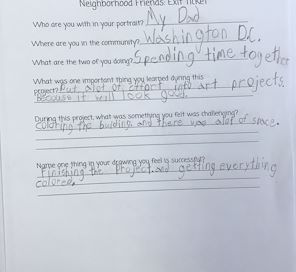 Neighborhood Friends: Exit Ticket
Who are you with in your portrait? My Dad
Where are you in the community? Washington D.C.
What are the two of you doing? Spending time together
What was one important thing you learned during this
project? Put alot of effort into art projects.
Because it will look good.
During this project, what was something you felt was challenging?
Coloring the building. and there was alot of space.
Name one thing in your drawing you feel is successful?
Finishing the Project. and getting everything
colored.